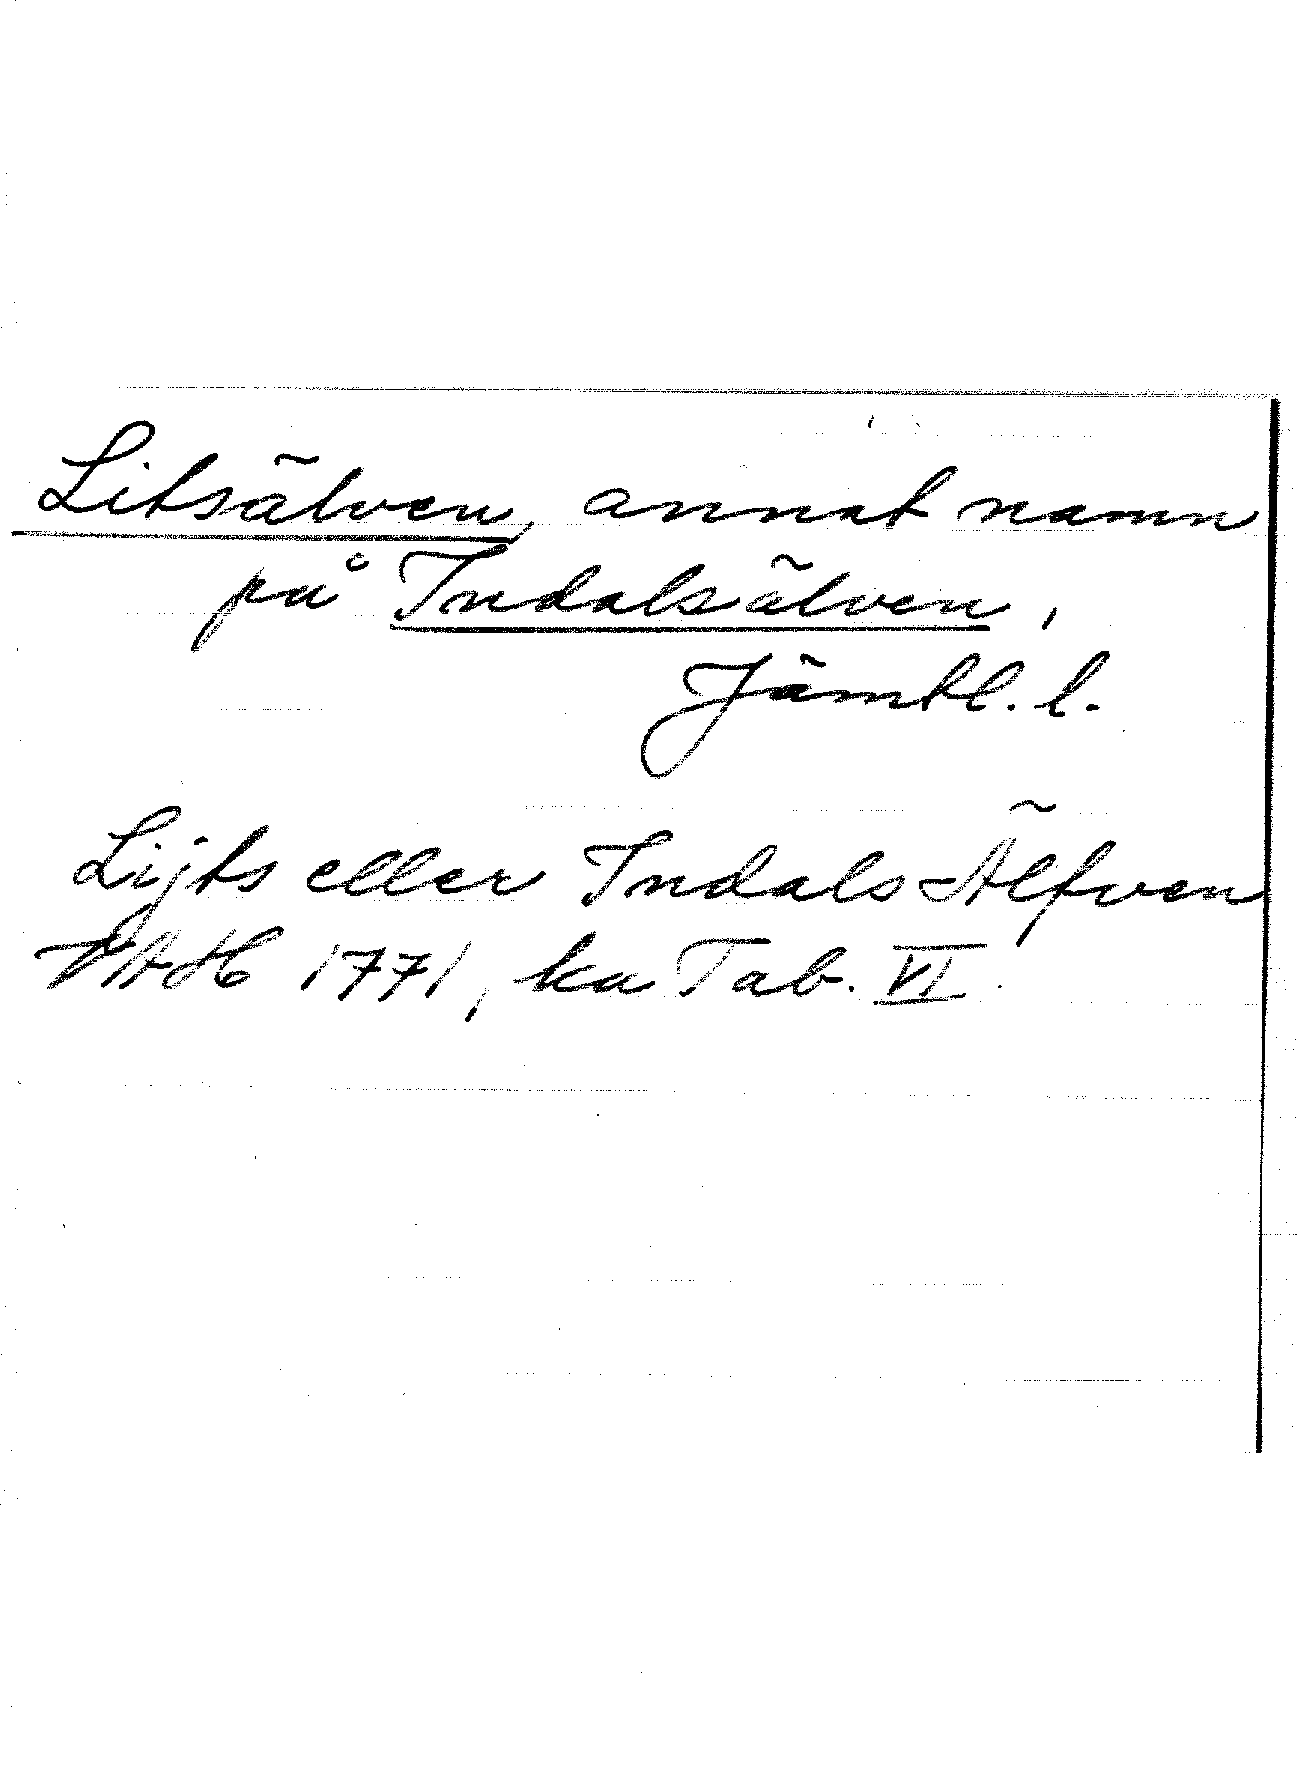 Litsälven, annat namn
på Indalsälven,
Jämtl. l.
Lijts eller Indals-Älfven
VAH 1771, ka Tab. VI